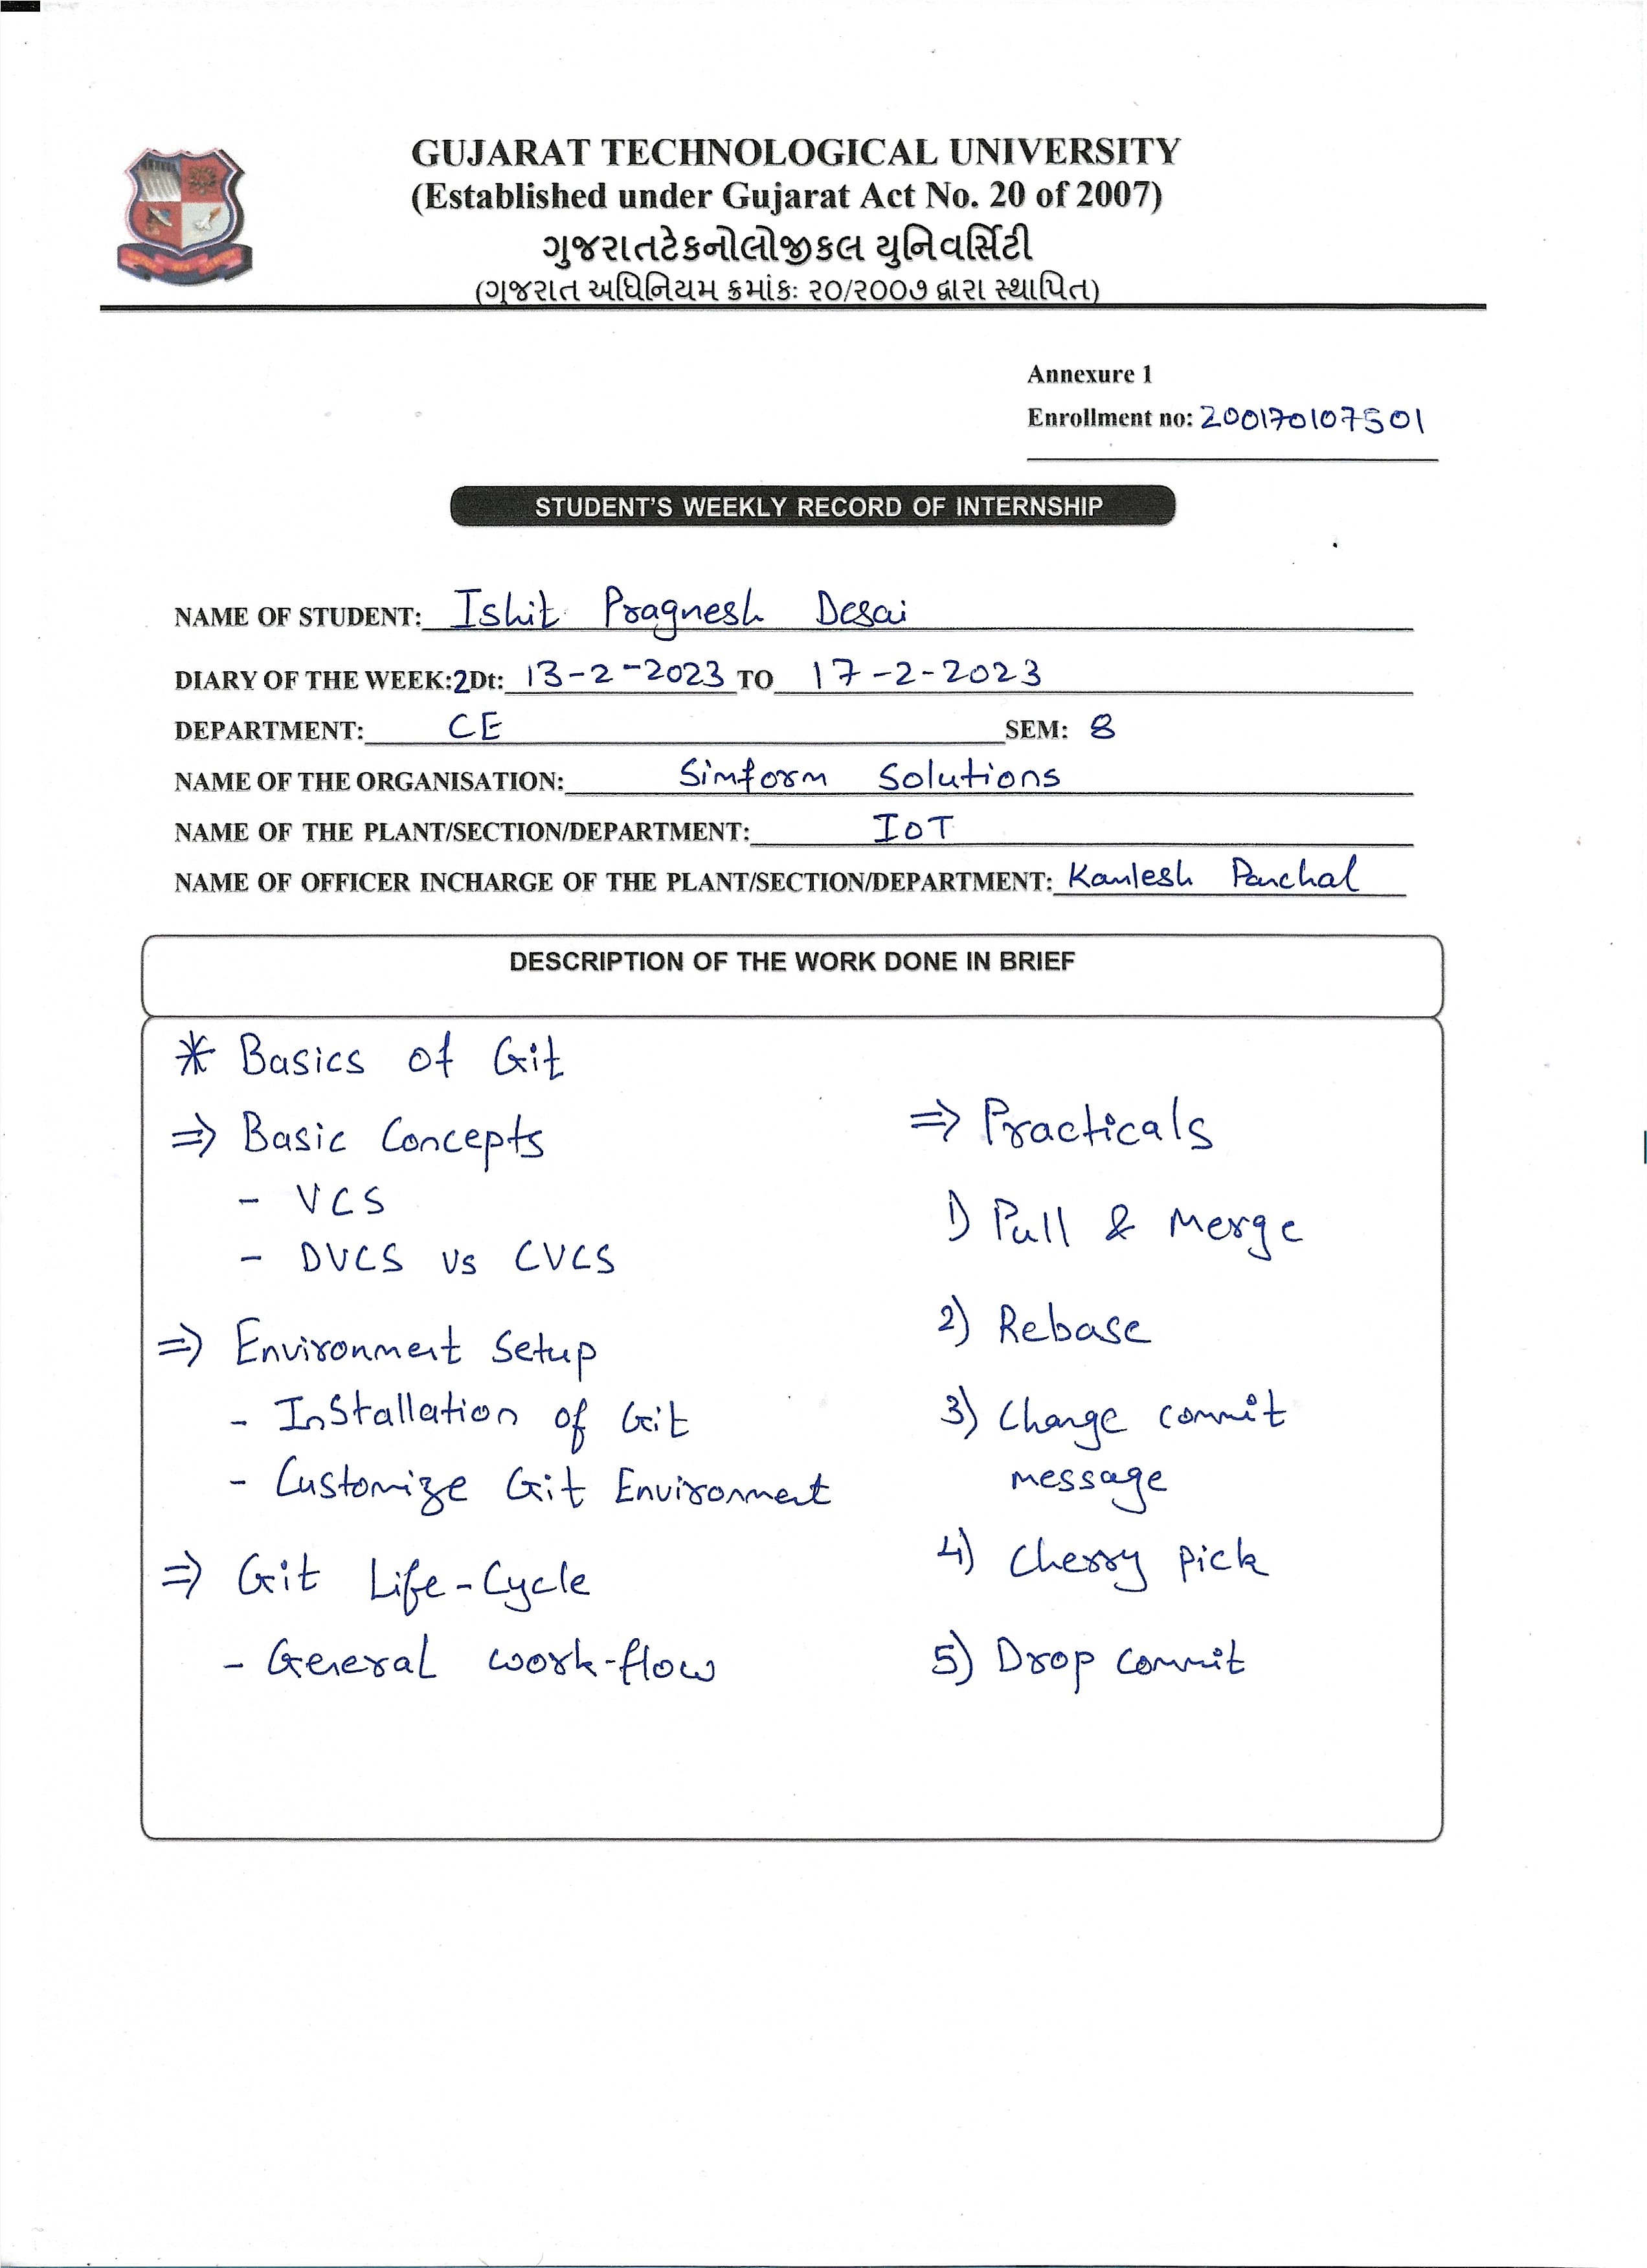 GUJARAT TECHNOLOGICAL UNIVERSITY
(Established under Gujarat Act No. 20 of 2007)
ગુજરાતટેકનોલોજીકલ યુનિવર્સિટી
(ગુજરાત અધિનિયમ ક્રમાંકઃ ૨૦/૨૦૦૭ દ્વારા સ્થાપિત)
Annexure 1
Enrollment no: 200170107501
STUDENT'S WEEKLY RECORD OF INTERNSHIP
NAME OF STUDENT: Ishit Pragnesh Desai
DIARY OF THE WEEK:2Dt: 13-2-2023 TO 17-2-2023
DEPARTMENT: CE SEM: 8
NAME OF THE ORGANISATION: Simform Solutions
NAME OF THE PLANT/SECTION/DEPARTMENT: IoT
NAME OF OFFICER INCHARGE OF THE PLANT/SECTION/DEPARTMENT: Kamlesh Panchal
DESCRIPTION OF THE WORK DONE IN BRIEF
* Basics of Git
⇒ Basic Concepts
- VCS
- DVCS vs CVCS
⇒ Environment Setup
- Installation of Git
- Customize Git Environment
⇒ Git Life-Cycle
- General work-flow
⇒ Practicals
1) Pull & Merge
2) Rebase
3) Change commit
message
4) Cherry pick
5) Drop commit